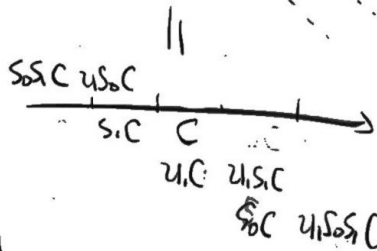 S₀S₁C U₁S₀C
S₁C C
U₁C U₁S₁C
S₀C U₁S₀S₁C